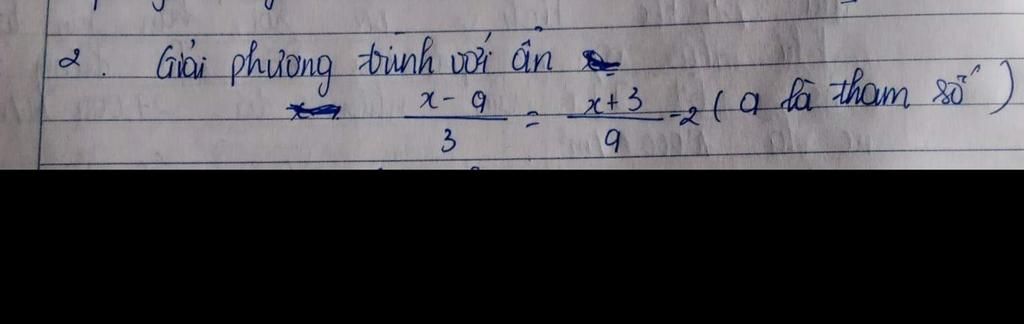 2. Giải phương trình với ẩn
x-a/3 = x+3/a -2 (a là tham số)